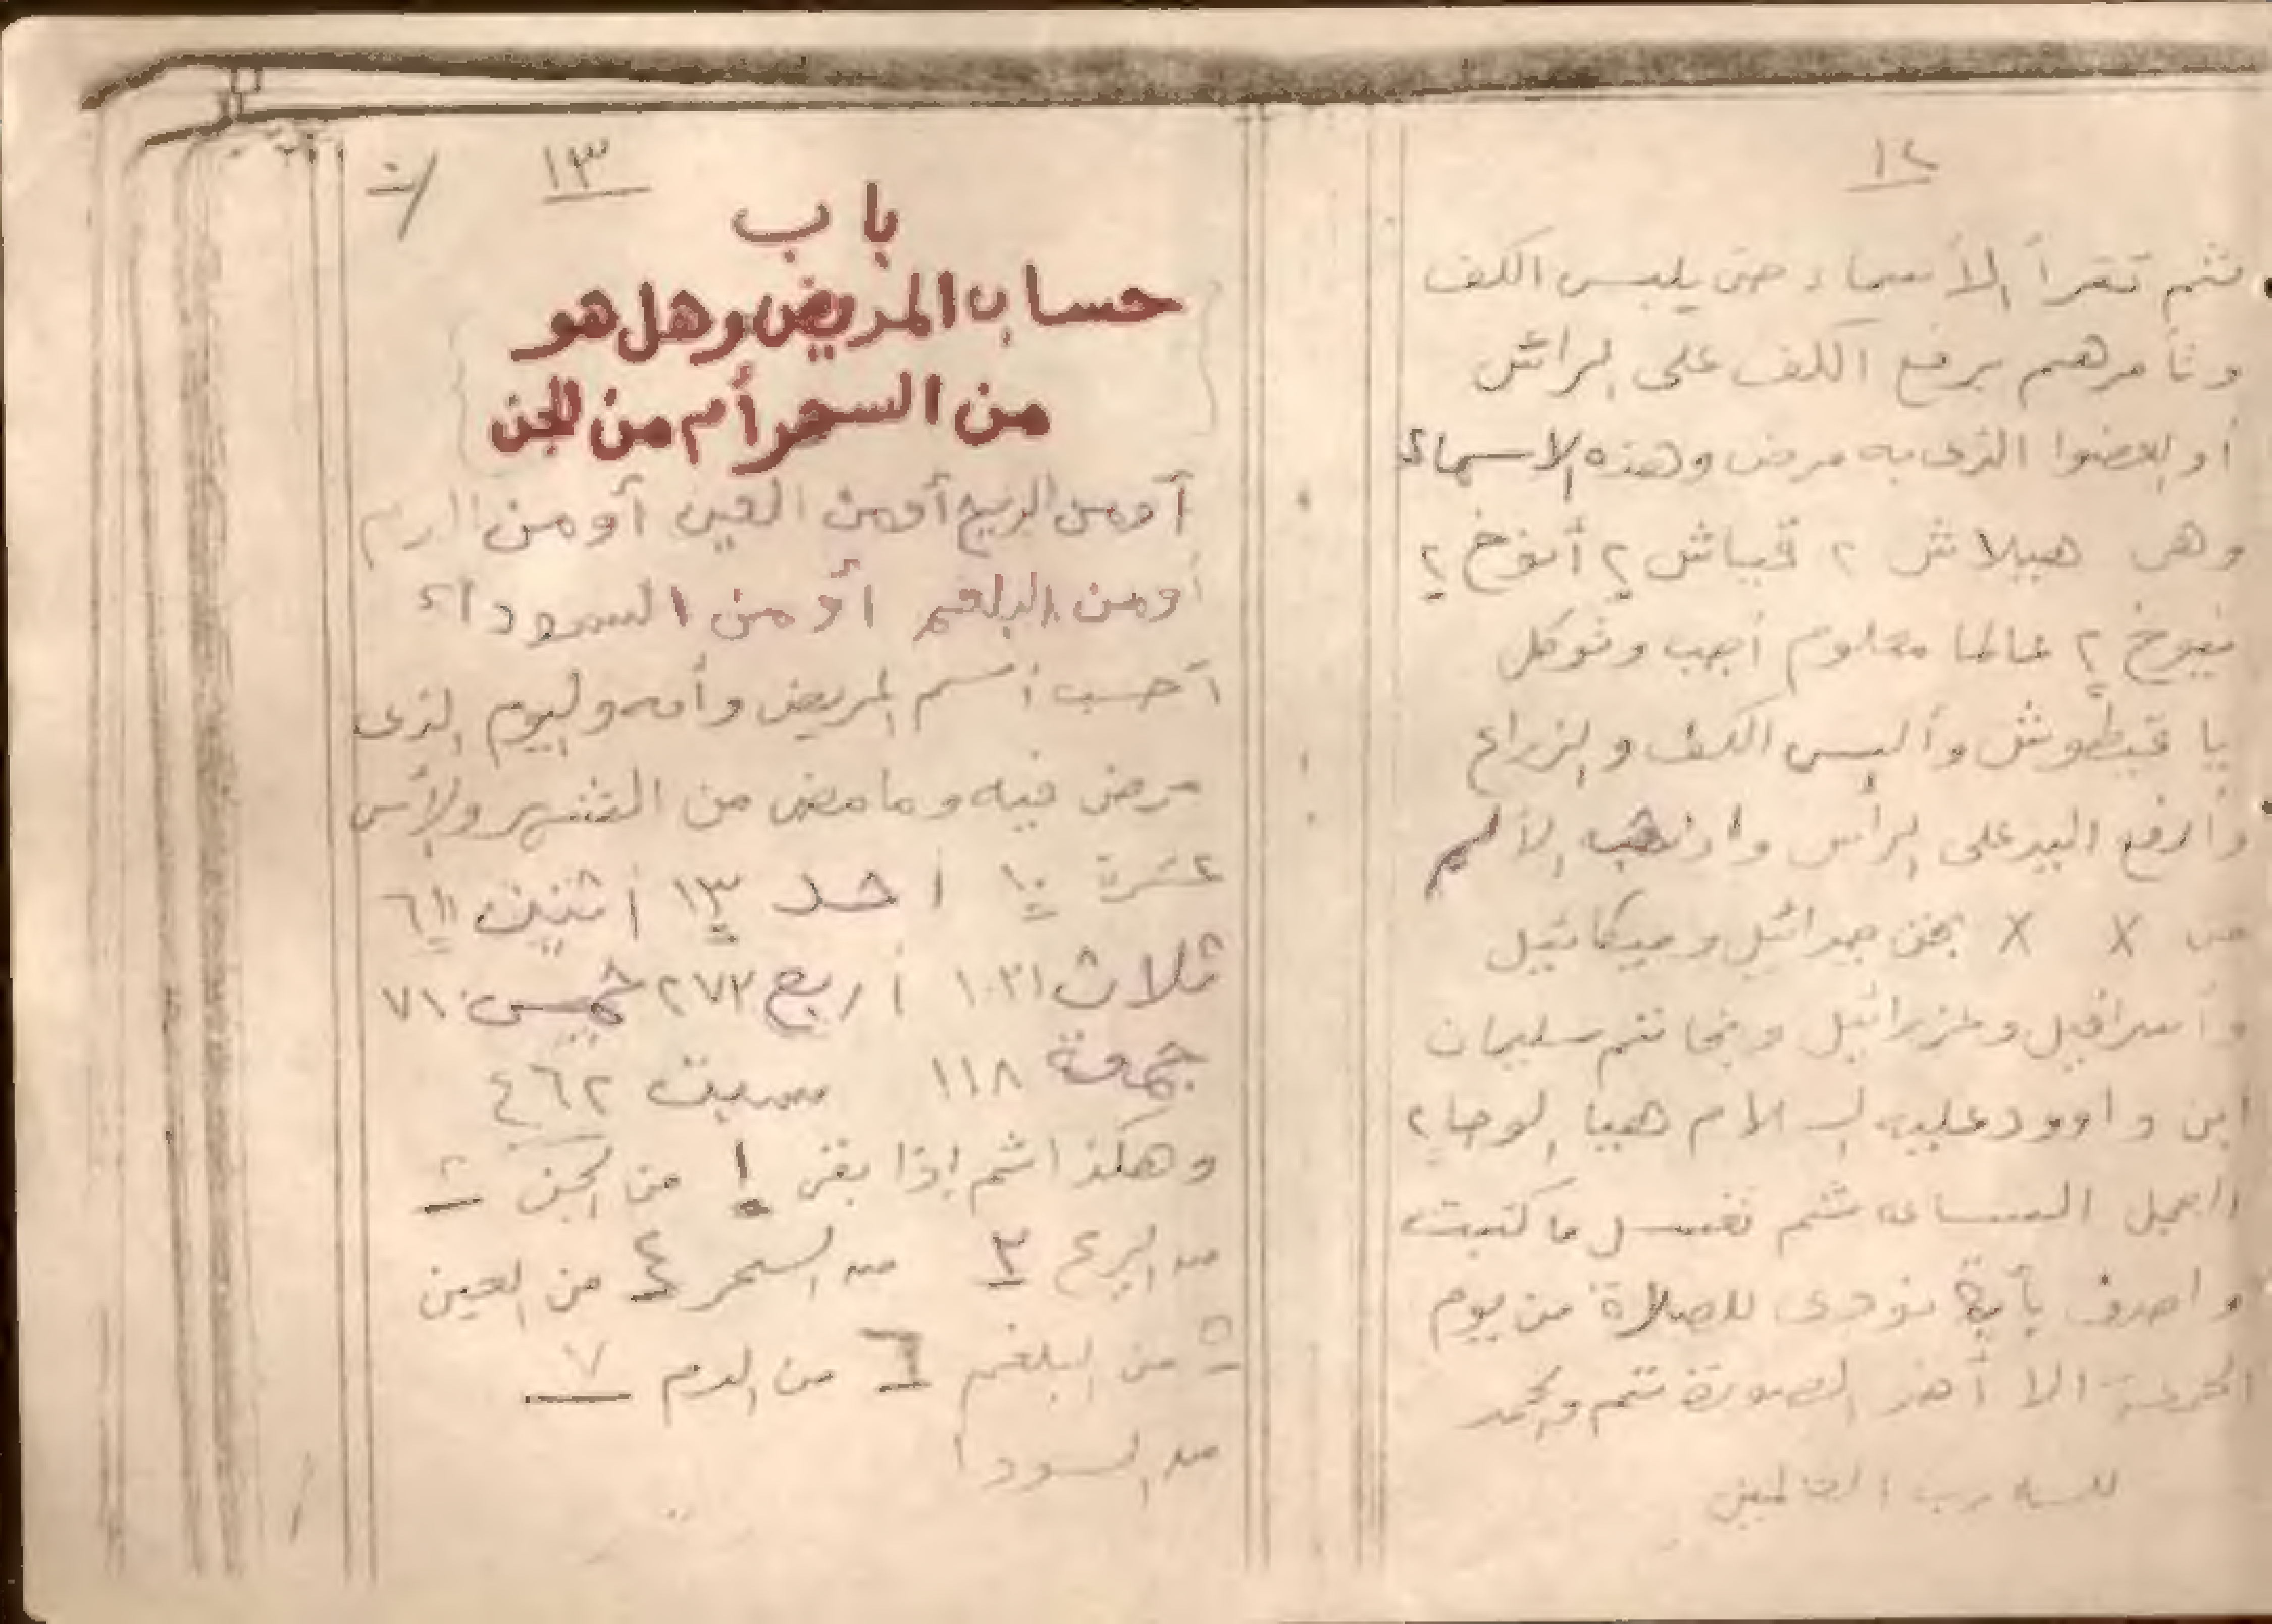 ١٢
ثم تقرأ الأسماء حتى يلبس الكف
وتأمرهم برفع الكف على الرائس
أو العضوا الذى به مرض وهذه الاسماء
وهى هيلاش ٢ قياش ٢ أنوخ ٢
نيوخ ٢ عالما معلوم أجب وتوكل
يا قيطوش وألبس الكف والزراع
وأرفع اليد على الرأس واذهب الألم
من X X بحق جبرائيل وميكائيل
وأسرافيل وعزرائيل وبخاتم سليمان
ابن داوود عليه السلام هيا الوحا ٢
العجل الساى ثم تغسل ما كتبت
واصرف بأية نودى للصلاة من يوم
الجمعة الا أهذ الصورة تتم والحمد
لله رب العالمين
١٣
با ب
حساب المريض وهل هو
من السحر أم من الجن
أومن الريح أومن العين أو من الدم
أومن البلغم أو من السوداء
أحسب أسم المريض وأمه واليوم الذى
مرض فيه وما مضى من الشهر والأس
عشرة ١٠ احد ١٣ أثنين ٦١١
ثلاث ١٠٣١ أربع ٢٧٣ خميس ٧١٠
جمعة ١١٨ سبت ٤٦٢
وهكذا ثم إذا بقى ١ من الجن ٢
من الريح ٣ من السحر ٤ من العين
٥ من البلغم ٦ من الدم ٧
من السودا